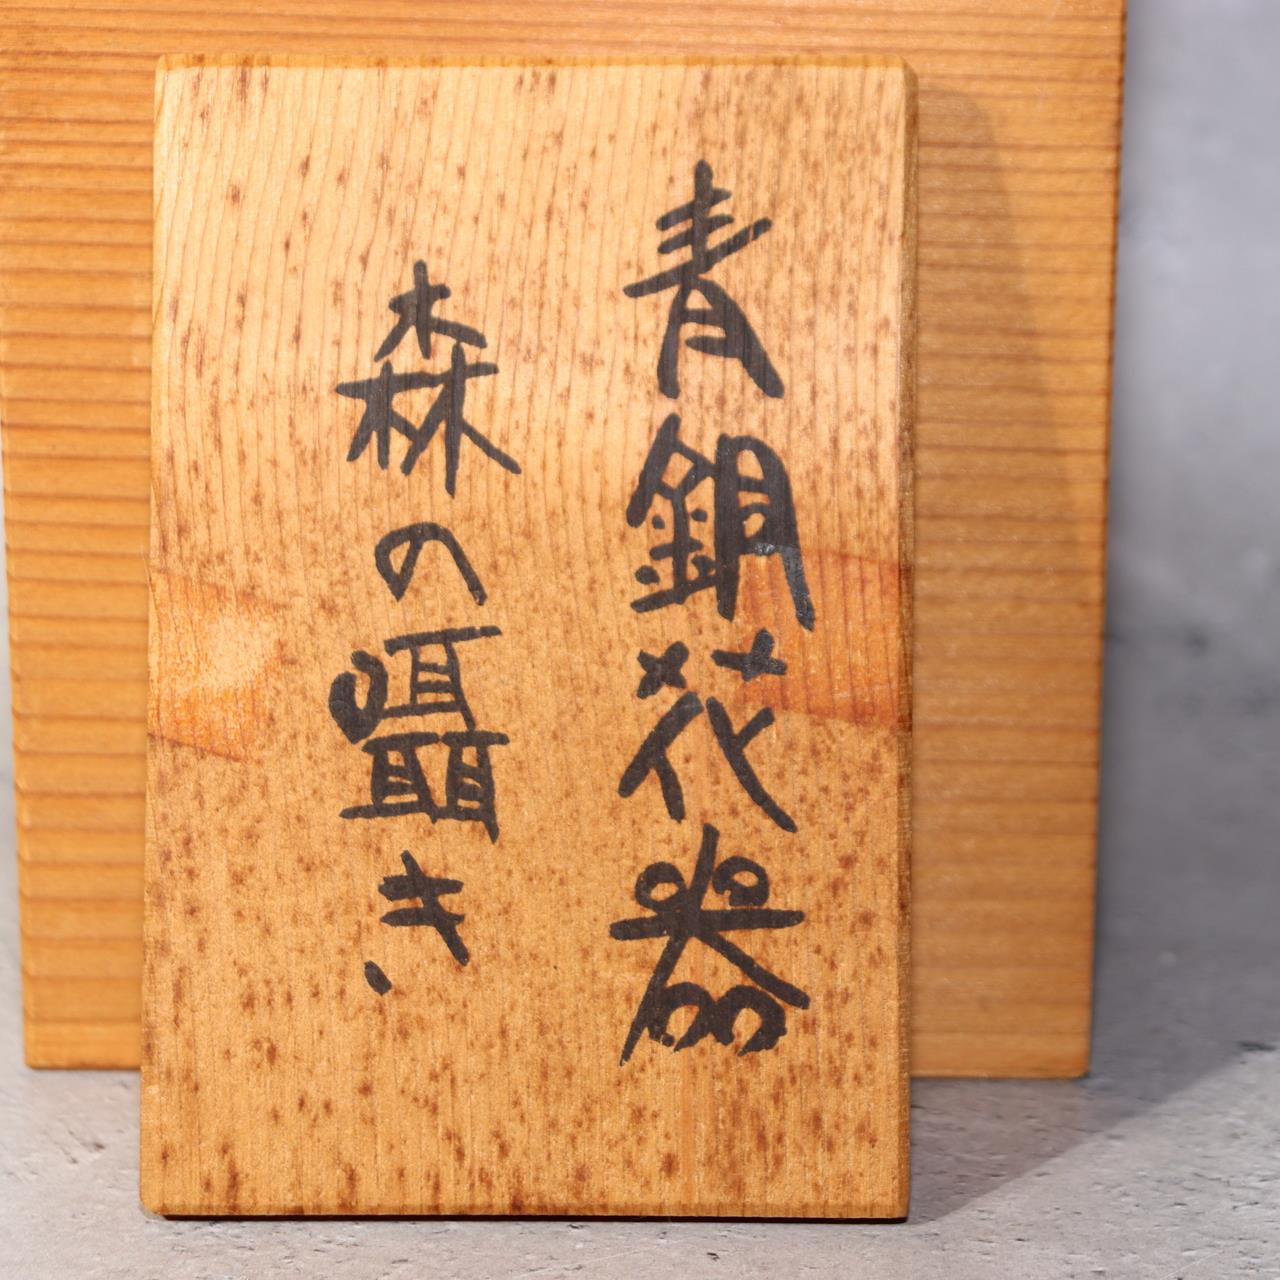 青銅花器
森の囁き